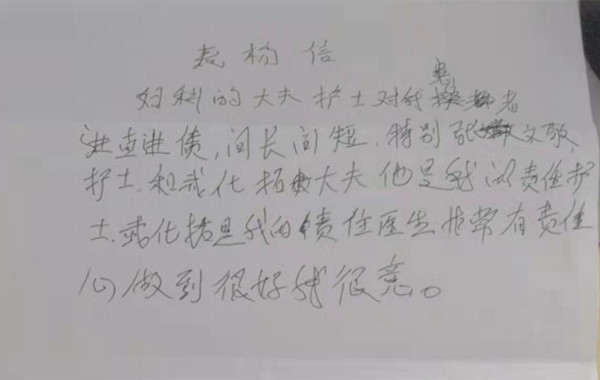 表杨信
妇科的大夫护士对我患者
进查进债,问长问短.特别张文敬
护士.和武化拓大夫他是我的责任护
士.武化拓是我的责任医生非常有责任
心做到很好我很意。